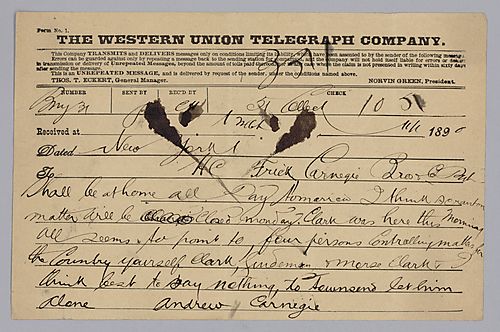 Form No. 1.
THE WESTERN UNION TELEGRAPH COMPANY.
This Company TRANSMITS and DELIVERS messages only on conditions limiting its liability, which have been assented to by the sender of the following message.
Errors can be guarded against only by repeating a message back to the sending station for comparison, and the Company will not hold itself liable for errors or delays
in transmission or delivery of Unrepeated Messages, beyond the amount of tolls paid thereon, nor in any case where the claim is not presented in writing within sixty days
after sending the message.
This is an UNREPEATED MESSAGE, and is delivered by request of the sender, under the conditions named above.
THOS. T. ECKERT, General Manager. NORVIN GREEN, President.
NUMBER SENT BY REC'D BY CHECK
Received at 189
Dated New York 1
To HC Frick Carnegie Bros
Shall be at home all Day tomorrow I think
matter will be Closed monday Clark was here this Morning
all seems to point to four persons Controlling
the Country yourself Clark, & Morse Clark & I
think best to say nothing to Townsend let him
alone Andrew Carnegie